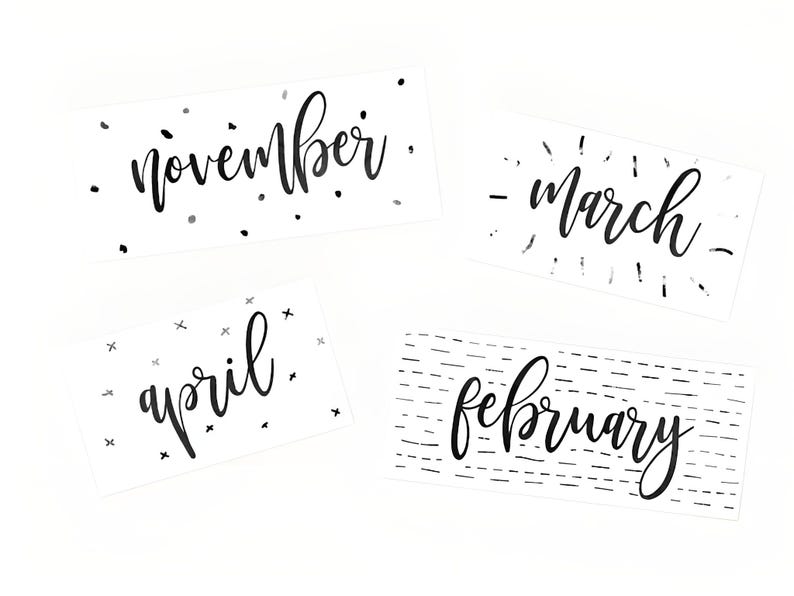 november
march
april
february